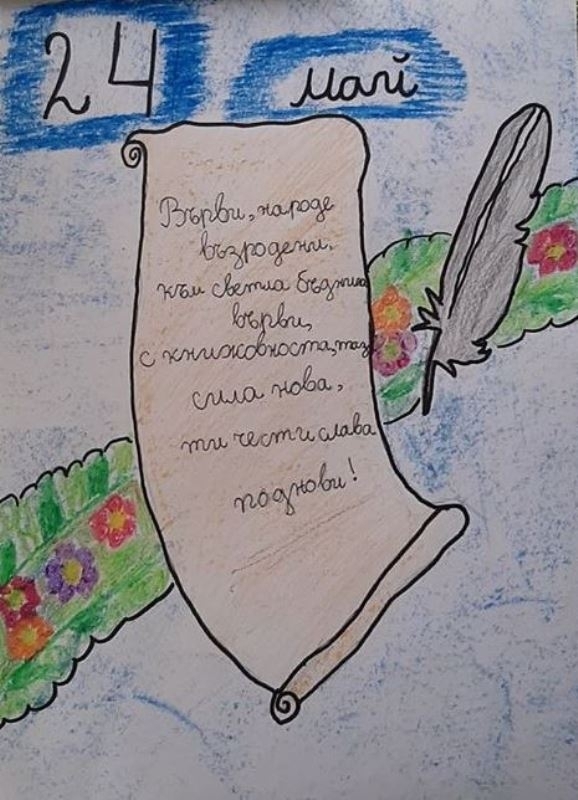 24 май
Върви, народе
възродени,
към светла бъднина
върви,
с книжовността, таз
сила нова,
ти чест и слава
поднови!